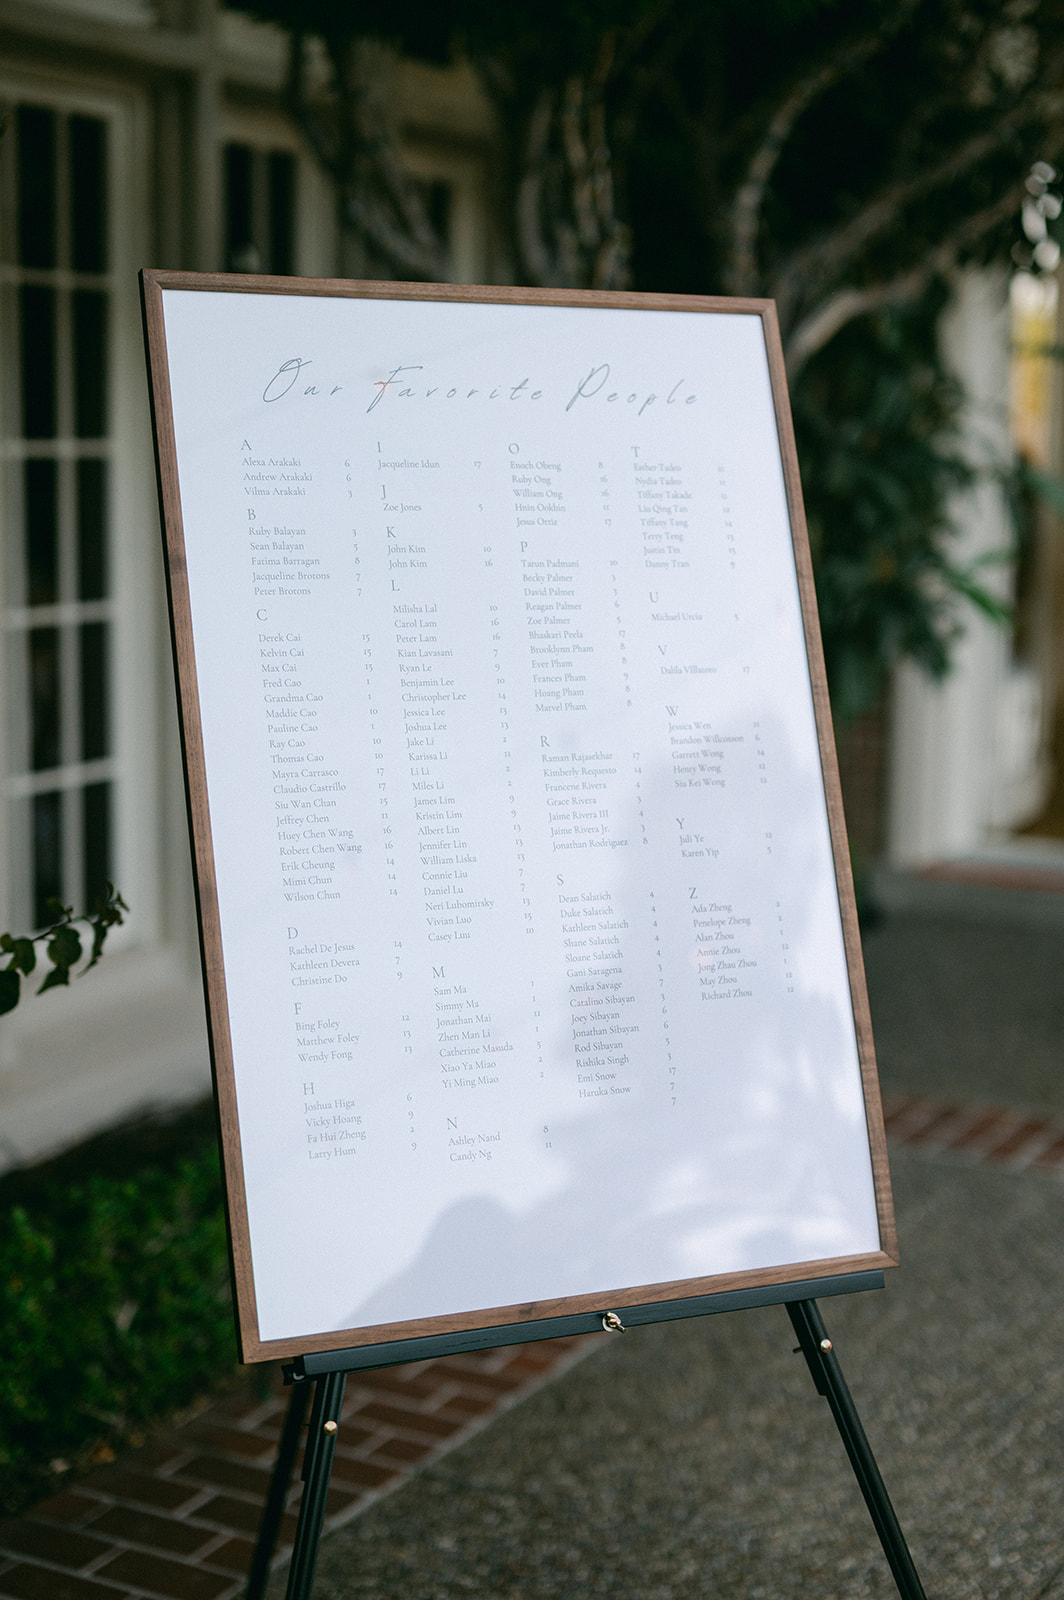 Our Favorite People
A
Alexa Arakaki 6
Andrew Arakaki 6
Vilma Arakaki 3
B
Ruby Balayan 3
Sean Balayan 5
Fatima Barragan 8
Jacqueline Brotons 7
Peter Brotons 7
C
Derek Cai 15
Kelvin Cai 15
Max Cai 15
Fred Cao 1
Grandma Cao 1
Maddie Cao 10
Pauline Cao 1
Ray Cao 10
Thomas Cao 10
Mayra Carrasco 17
Claudio Castrillo 17
Siu Wan Chan 15
Jeffrey Chen 11
Huey Chen Wang 16
Robert Chen Wang 16
Erik Cheung 14
Mimi Chun 14
Wilson Chun 14
D
Rachel De Jesus 14
Kathleen Devera 7
Christine Do 9
F
Bing Foley 12
Matthew Foley 13
Wendy Fong 13
H
Joshua Higa 6
Vicky Hoang 9
Fa Hui Zheng 2
Larry Hum 9
I
Jacqueline Idun 17
J
Zoe Jones 5
K
John Kim 10
John Kim 16
L
Milisha Lal 10
Carol Lam 16
Peter Lam 16
Kian Lavasani 7
Ryan Le 9
Benjamin Lee 10
Christopher Lee 14
Jessica Lee 13
Joshua Lee 13
Jake Li 2
Karissa Li 11
Li Li 2
Miles Li 2
James Lim 9
Kristin Lim 9
Albert Lin 13
Jennifer Lin 13
William Liska 13
Connie Liu 7
Daniel Lu 7
Neri Lubomirsky 13
Vivian Luo 15
Casey Luu 10
M
Sam Ma 1
Simmy Ma 1
Jonathan Mai 11
Zhen Man Li 1
Catherine Masuda 5
Xiao Ya Miao 2
Yi Ming Miao 2
N
Ashley Nand 8
Candy Ng 11
O
Enoch Obeng 8
Ruby Ong 16
William Ong 16
Hnin Ookhin 11
Jesus Ortiz 17
P
Tarun Padmani 10
Becky Palmer 3
David Palmer 3
Reagan Palmer 6
Zoe Palmer 5
Bhaskari Peela 17
Brooklynn Pham 8
Ever Pham 8
Frances Pham 9
Hoang Pham 8
Marvel Pham 8
R
Raman Rajasekhar 17
Kimberly Requesto 14
Francene Rivera 4
Grace Rivera 3
Jaime Rivera III 4
Jaime Rivera Jr. 3
Jonathan Rodriguez 8
S
Dean Salatich 4
Duke Salatich 4
Kathleen Salatich 4
Shane Salatich 4
Sloane Salatich 4
Gani Saragena 3
Amika Savage 7
Catalino Sibayan 3
Joey Sibayan 6
Jonathan Sibayan 6
Rod Sibayan 5
Rishika Singh 3
Emi Snow 17
Haruka Snow 7
7
T
Esther Tadeo 11
Nydia Tadeo 11
Tiffany Takade
Liu Qing Tan 12
Tiffany Tang 14
Terry Teng 13
Justin Tin 15
Danny Tran 9
U
Michael Urcia 5
V
Dalila Villatoro 17
W
Jessica Wen 11
Brandon Wilkonson 6
Garrett Wong 14
Henry Wong 12
Siu Kei Wong 12
Y
Juli Ye 12
Karen Yip 5
Z
Ada Zheng 2
Penelope Zheng 2
Alan Zhou 1
Annie Zhou 12
Jong Zhau Zhou 1
May Zhou 12
Richard Zhou 12